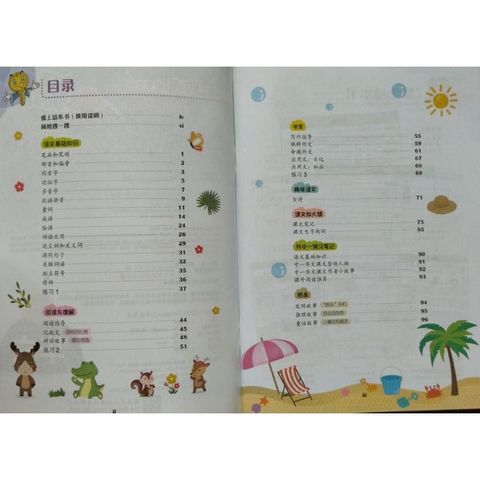 目录
爱上这本书（使用说明） iv
阅给搜一搜 vi
语文基础知识
笔画和笔顺 1
部首和偏旁 2
同音字 3
近似字 5
多音字 7
汉语拼音 9
量词 11
成语 14
俗语 24
词语应用 26
近义词和反义词 29
排列句子 31
关联词语 32
标点符号 35
修辞 36
练习1 37
阅读与理解
阅读指导 44
记叙文 45
神话故事 49
练习2 51
ii
书写
写作指导 55
供料作文 58
命题作文 61
应用文：日记 67
应用文：私函 68
练习3 69
趣味语文
古诗 71
课文拾火锅
课文笔记 75
课文生字的词 85
升中一预习笔记
语文基础知识 90
中一华文课文登场人物 91
中一华文课文作者小故事 92
课外阅读推荐 93
附录
发明故事 94
推理故事 95
童话故事 96